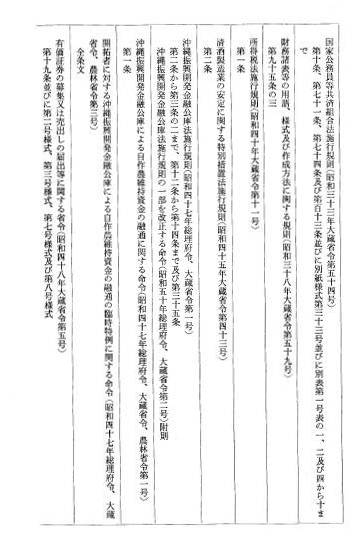 国家公務員等共済組合法施行規則(昭和三十三年大蔵省令第五十四号)
第十条、第七十一条、第七十四条及び第百十三条並びに別紙様式第三十三号並びに別表第一号表の一、二及び四から十ま
で
財務諸表等の用語、様式及び作成方法に関する規則(昭和三十八年大蔵省令第五十九号)
第九十五条の三
所得税法施行規則(昭和四十年大蔵省令第十一号)
第一条
清酒製造業の安定に関する特別措置法施行規則(昭和四十五年大蔵省令第四十三号)
第二条
沖縄振興開発金融公庫法施行規則(昭和四十七年総理府令、大蔵省令第一号)
第二条から第三条の二まで、第十二条から第十四条まで及び第三十五条
沖縄振興開発金融公庫法施行規則の一部を改正する命令(昭和五十年総理府令、大蔵省令第二号)附則
沖縄振興開発金融公庫による自作農維持資金の融通に関する命令(昭和四十七年総理府令、大蔵省令、農林省令第一号)
第一条
開拓者に対する沖縄振興開発金融公庫による自作農維持資金の融通の臨時特例に関する命令(昭和四十七年総理府令、大蔵
省令、農林省令第三号)
全条文
有価証券の募集又は売出しの届出等に関する省令(昭和四十八年大蔵省令第五号)
第十九条並びに第二号様式、第三号様式、第七号様式及び第八号様式